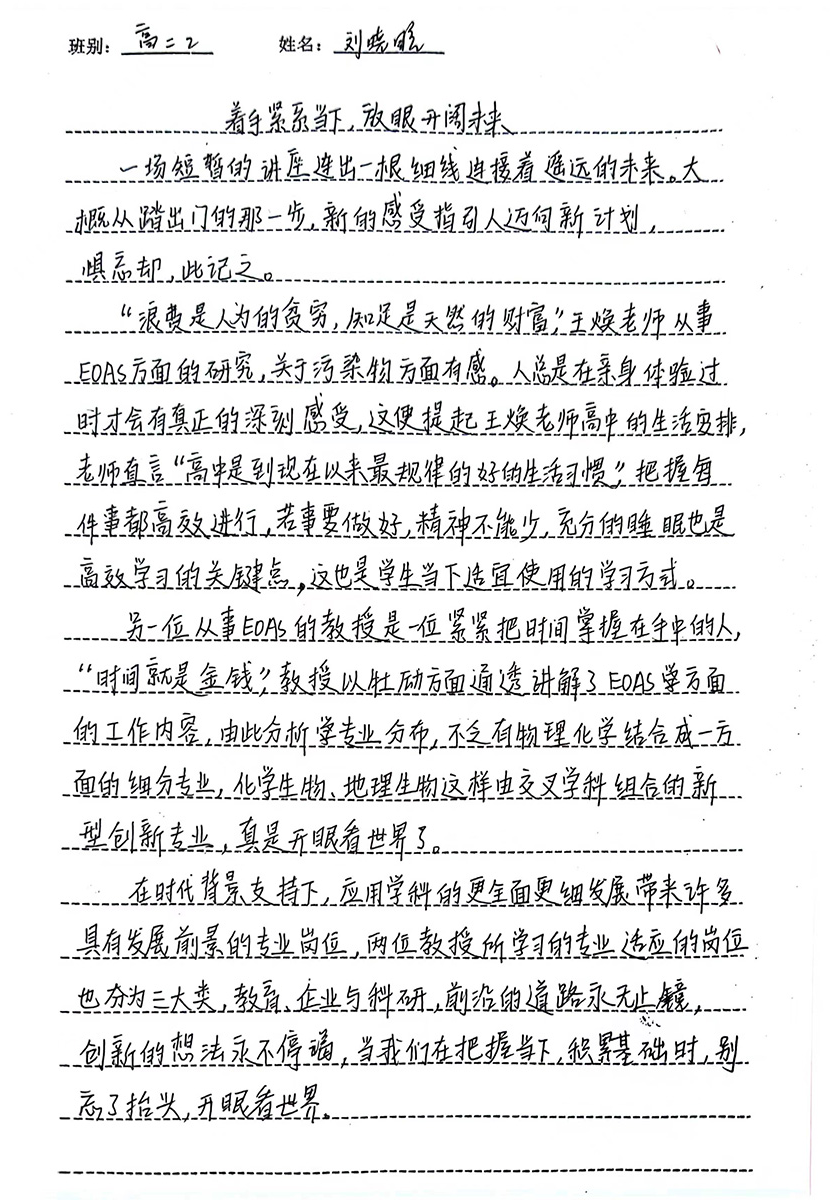 班别：高二2 姓名：刘晓
着手紧系当下，放眼开阔未来
一场短暂的讲座连出一根细线连接着遥远的未来。大
概从踏出门的那一步，新的感受指引人迈向新计划，
惧忘却，此记之。
“浪费是人为的贫穷，知足是天然的财富”，王焕老师从事
EOAS方面的研究，关于污染物方面有感。人总是在亲身体验过
时才会有真正的深刻感受，这便提起王焕老师高中的生活安排，
老师直言“高中是到现在以来最规律的好的生活习惯”，把握每
件事都高效进行，若事要做好，精神不能少，充分的睡眠也是
高效学习的关键点，这也是学生当下适宜使用的学习方式。
另一位从事EOAS的教授是一位紧紧把时间掌握在手中的人，
“时间就是金钱”，教授以牡励方面通透讲解了EOAS学方面
的工作内容，由此分析学专业分布，不乏有物理化学结合成一方
面的细分专业，化学生物、地理生物这样由交叉学科组合的新
型创新专业，真是开眼看世界了。
在时代背景支持下，应用学科的更全面更细发展带来许多
具有发展前景的专业岗位，两位教授所学习的专业适应的岗位
也分为三大类，教育、企业与科研，前沿的道路永无止镜，
创新的想法永不停竭，当我们在把握当下，积累基础时，别
忘了抬头，开眼看世界。